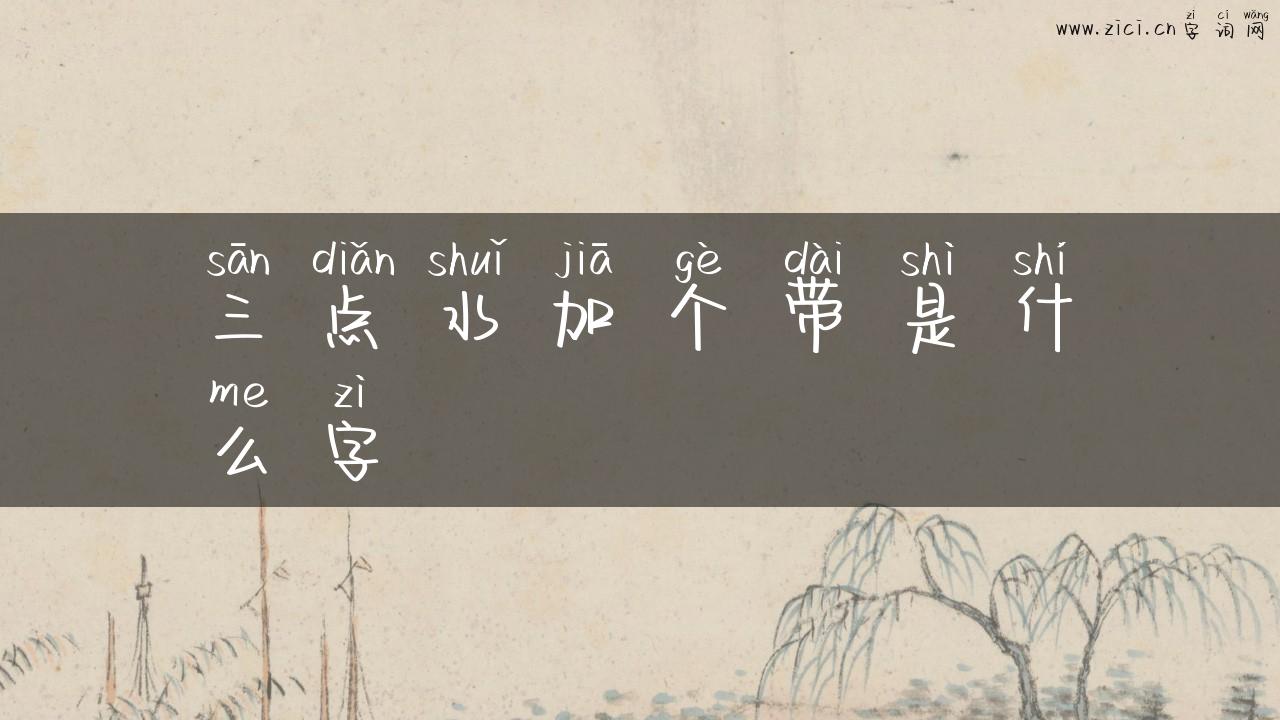 zì cí wǎng
www.zici.cn 字 词 网
sān diǎn shuǐ jiā gè dài shì shí
三 点 水 加 个 带 是 什
me zì
么 字